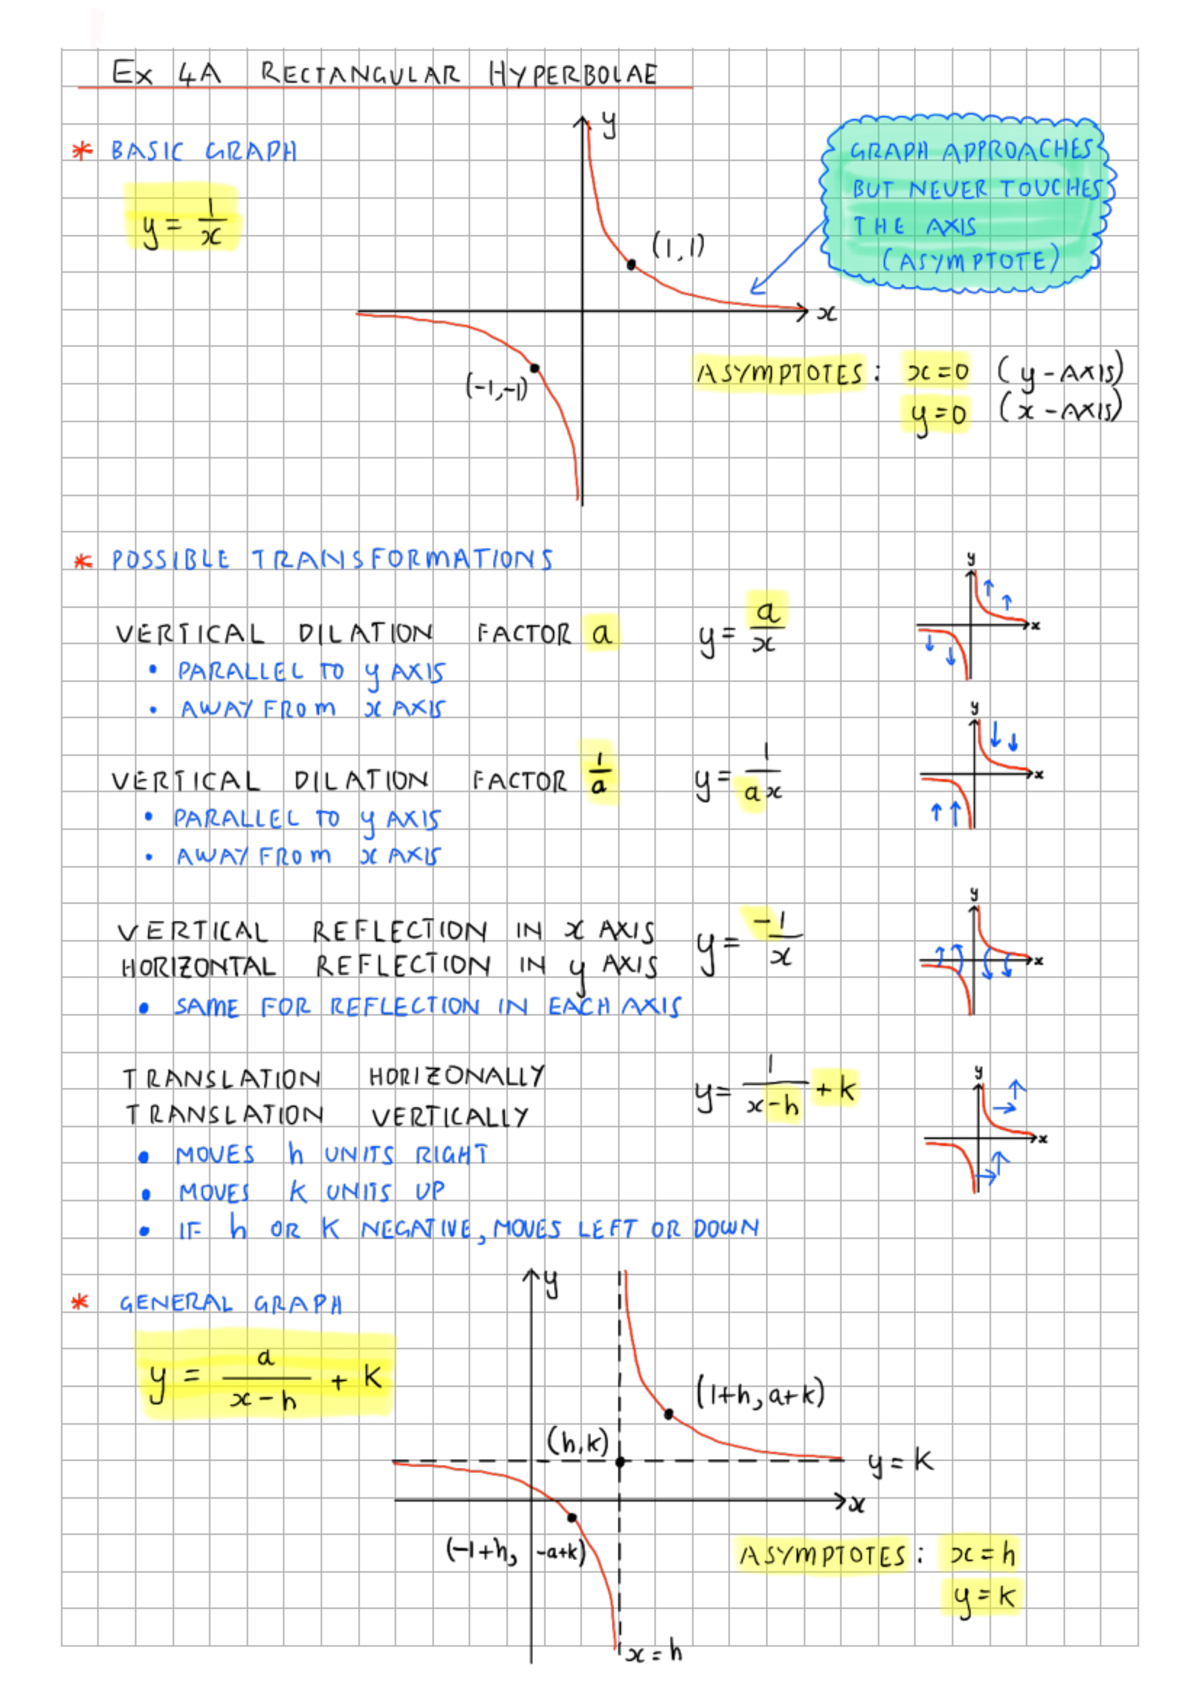 Ex 4A RECTANGULAR HYPERBOLAE
* BASIC GRAPH
y = 1/x
y
(1,1)
x
(-1,-1)
GRAPH APPROACHES
BUT NEVER TOUCHES
THE AXIS
(ASYMPTOTE)
ASYMPTOTES: x=0 (y-AXIS)
y=0 (x-AXIS)
* POSSIBLE TRANSFORMATIONS
VERTICAL DILATION FACTOR a y = a/x
• PARALLEL TO y AXIS
• AWAY FROM x AXIS
y
x
VERTICAL DILATION FACTOR 1/a y = 1/ax
• PARALLEL TO y AXIS
• AWAY FROM x AXIS
y
x
VERTICAL REFLECTION IN x AXIS y = -1/x
HORIZONTAL REFLECTION IN y AXIS
• SAME FOR REFLECTION IN EACH AXIS
y
x
TRANSLATION HORIZONALLY y = 1/(x-h) + k
TRANSLATION VERTICALLY
• MOVES h UNITS RIGHT
• MOVES k UNITS UP
• IF h OR K NEGATIVE, MOVES LEFT OR DOWN
y
x
* GENERAL GRAPH
y = a/(x-h) + k
y
(1+h, a+k)
(h,k)
y = k
x
(-1+h, -a+k)
x = h
ASYMPTOTES: x = h
y = k